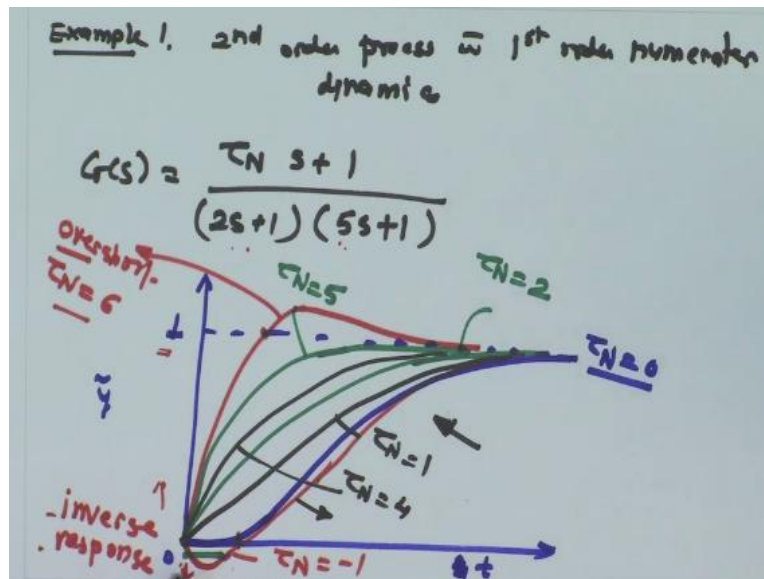 Example 1. 2nd order process w̄ 1st order numerator
dynamics
G(s) = τN s + 1
(2s+1) (5s+1)
overshoot
τN = 6
τN=5
τN=2
1
τN=0
ỹ
τN=1
τN=4
inverse
response
0
τN=-1
t